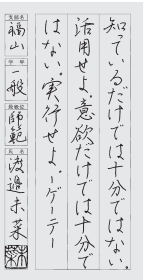 知っているだけでは十分ではない。
活用せよ。意欲だけでは十分で
はない。実行せよ。ーゲーテー
支部名
福山
学年
一般
段級位
師範
氏名
渡邉未菜